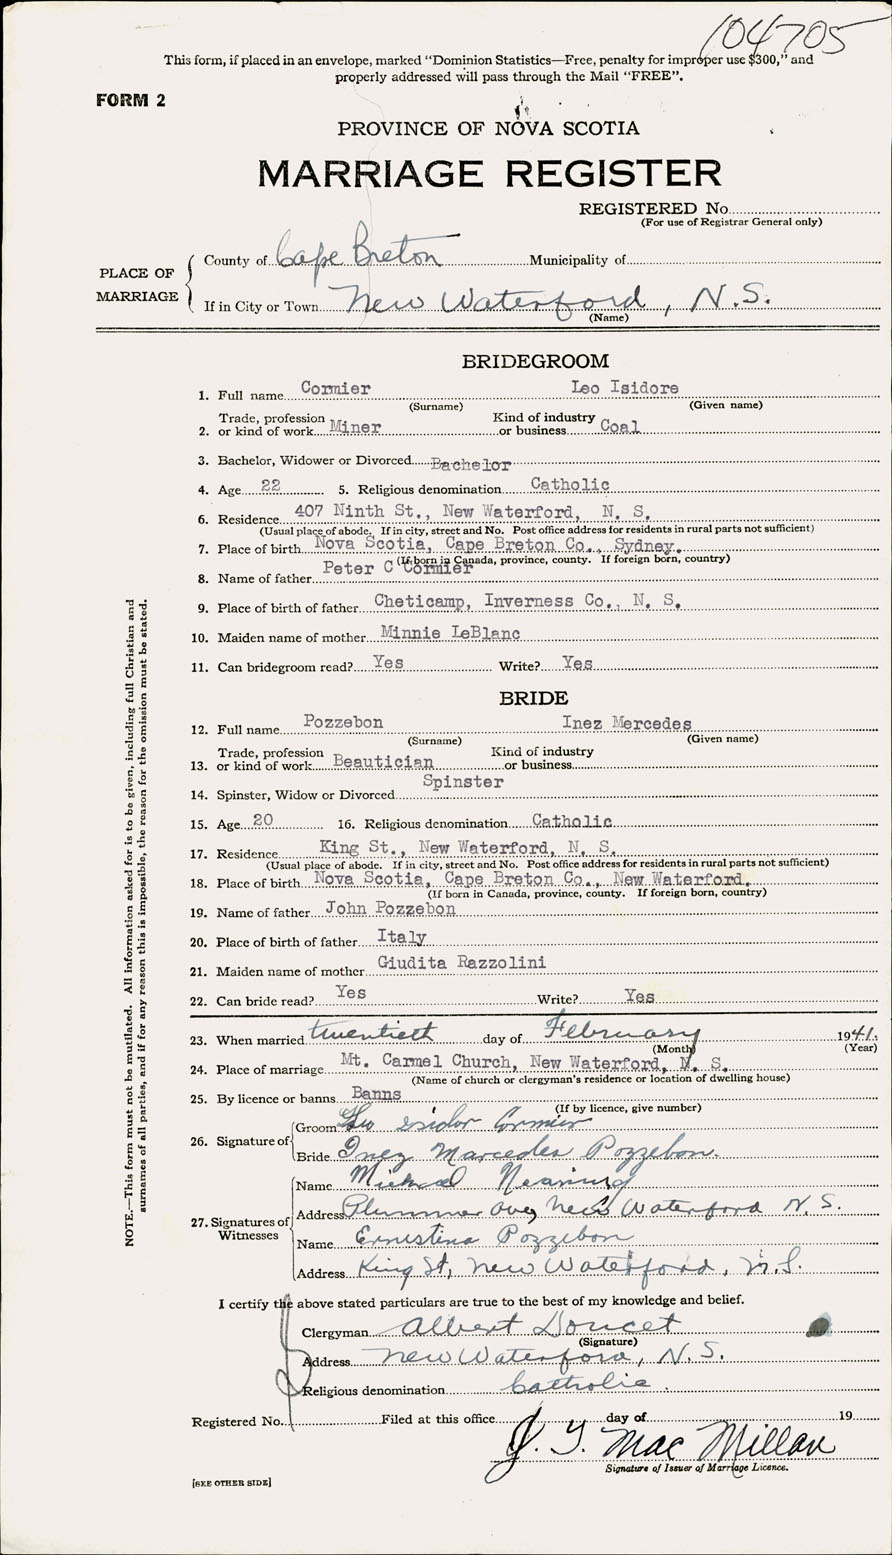 104705
This form, if placed in an envelope, marked "Dominion Statistics—Free, penalty for improper use $300," and
properly addressed will pass through the Mail "FREE".
FORM 2
PROVINCE OF NOVA SCOTIA
MARRIAGE REGISTER
REGISTERED No.
(For use of Registrar General only)
PLACE OF MARRIAGE
County of Cape Breton Municipality of
If in City or Town New Waterford, N.S.
(Name)
BRIDEGROOM
1. Full name Cormier Leo Isidore
(Surname) (Given name)
2. Trade, profession or kind of work Miner Kind of industry or business Coal
3. Bachelor, Widower or Divorced Bachelor
4. Age 22 5. Religious denomination Catholic
6. Residence 407 Ninth St., New Waterford, N. S.
(Usual place of abode. If in city, street and No. Post office address for residents in rural parts not sufficient)
7. Place of birth Nova Scotia, Cape Breton Co., Sydney.
(If born in Canada, province, county. If foreign born, country)
8. Name of father Peter C Cormier
9. Place of birth of father Cheticamp, Inverness Co., N. S.
10. Maiden name of mother Minnie LeBlanc
11. Can bridegroom read? Yes Write? Yes
BRIDE
12. Full name Pozzebon Inez Mercedes
(Surname) (Given name)
13. Trade, profession or kind of work Beautician Kind of industry or business
14. Spinster, Widow or Divorced Spinster
15. Age 20 16. Religious denomination Catholic
17. Residence King St., New Waterford, N. S.
(Usual place of abode. If in city, street and No. Post office address for residents in rural parts not sufficient)
18. Place of birth Nova Scotia, Cape Breton Co., New Waterford.
(If born in Canada, province, county. If foreign born, country)
19. Name of father John Pozzebon
20. Place of birth of father Italy
21. Maiden name of mother Giudita Razzolini
22. Can bride read? Yes Write? Yes
23. When married twentieth day of February 1941.
(Month) (Year)
24. Place of marriage Mt. Carmel Church, New Waterford, N. S.
(Name of church or clergyman's residence or location of dwelling house)
25. By licence or banns Banns
(If by licence, give number)
26. Signature of
Groom Leo Isidor Cormier
Bride Inez Marcedes Pozzebon.
27. Signatures of Witnesses
Name Michael Nearing
Address Plummer Ave, New Waterford N. S.
Name Ernestina Pozzebon
Address King St, New Waterford, N.S.
I certify the above stated particulars are true to the best of my knowledge and belief.
Clergyman Albert Doucet
(Signature)
Address New Waterford, N.S.
Religious denomination Catholic.
Registered No. Filed at this office day of 19
J. G. MacMillan
Signature of Issuer of Marriage Licence.
[SEE OTHER SIDE]
NOTE.—This form must not be mutilated. All information asked for is to be given, including full Christian and
surnames of all parties, and if for any reason this is impossible, the reason for the omission must be stated.